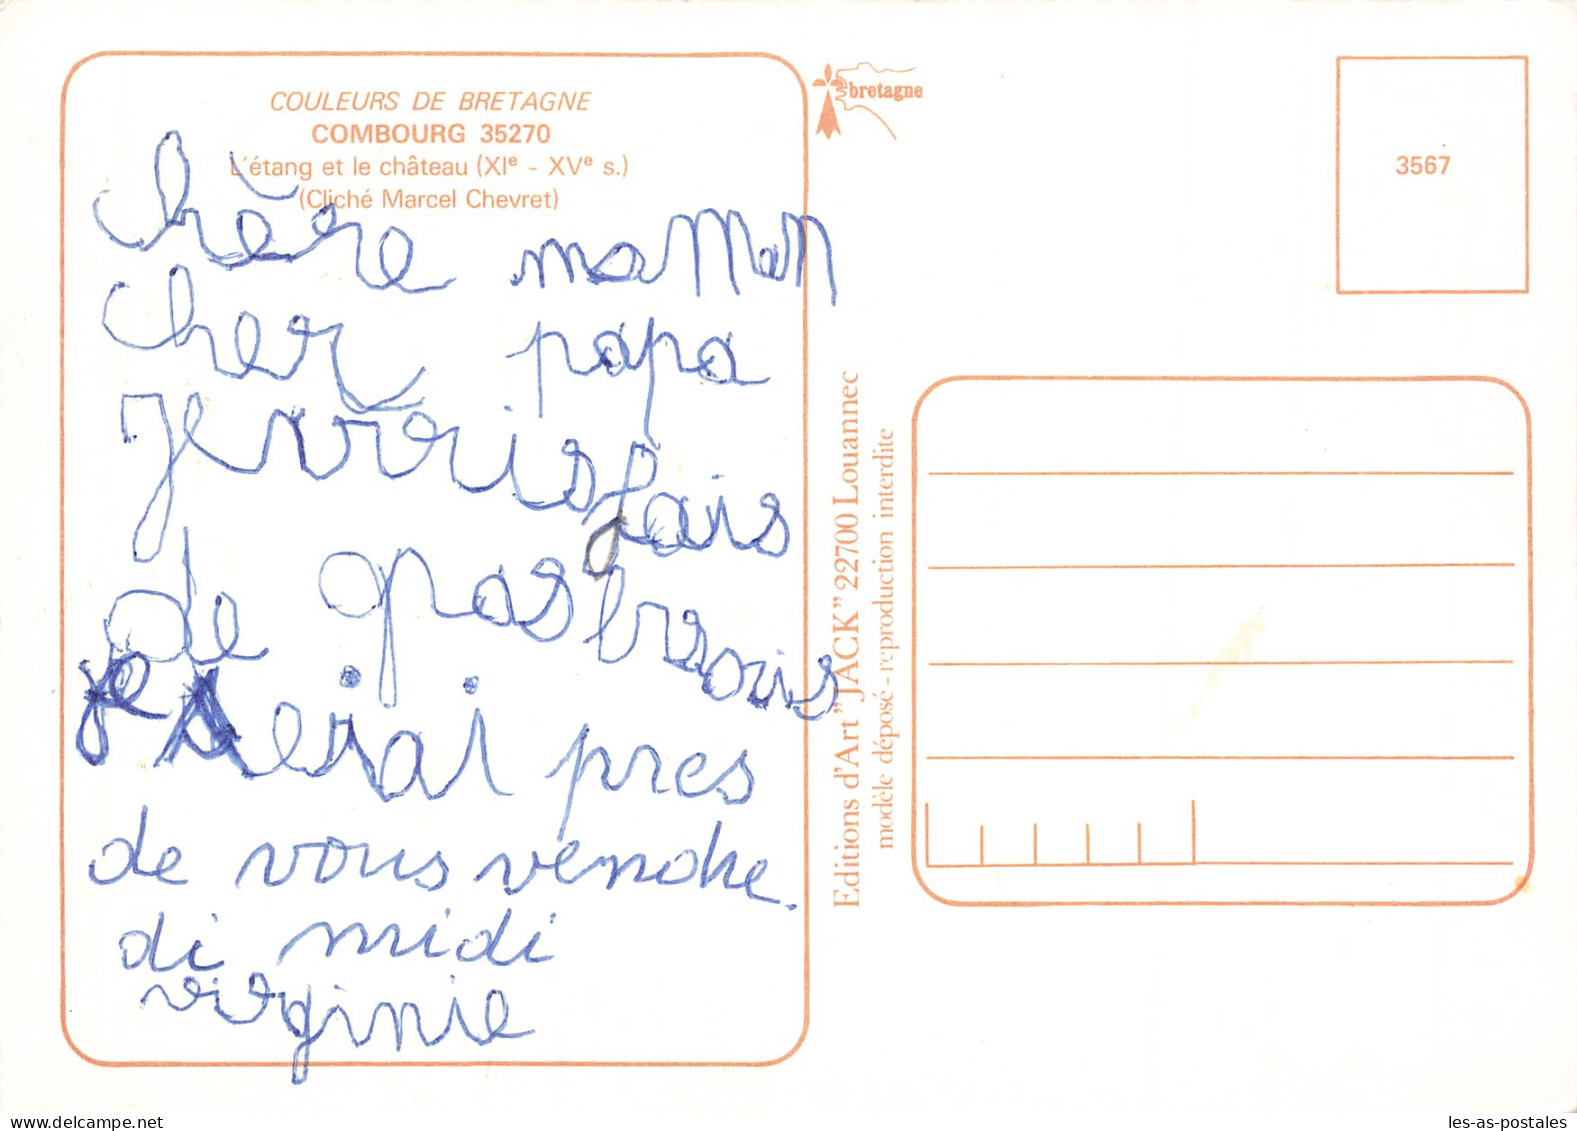 COULEURS DE BRETAGNE
COMBOURG 35270
L'étang et le château (XIe - XVe s.)
(Cliché Marcel Chevret)
chère maman
cher papa
Je vous fais
de gros bisous
je serai pres
de vous vendre.
di midi
virginie
bretagne
3567
Editions d'Art "JACK" 22700 Louannec
modèle déposé - reproduction interdite
les-as-postales